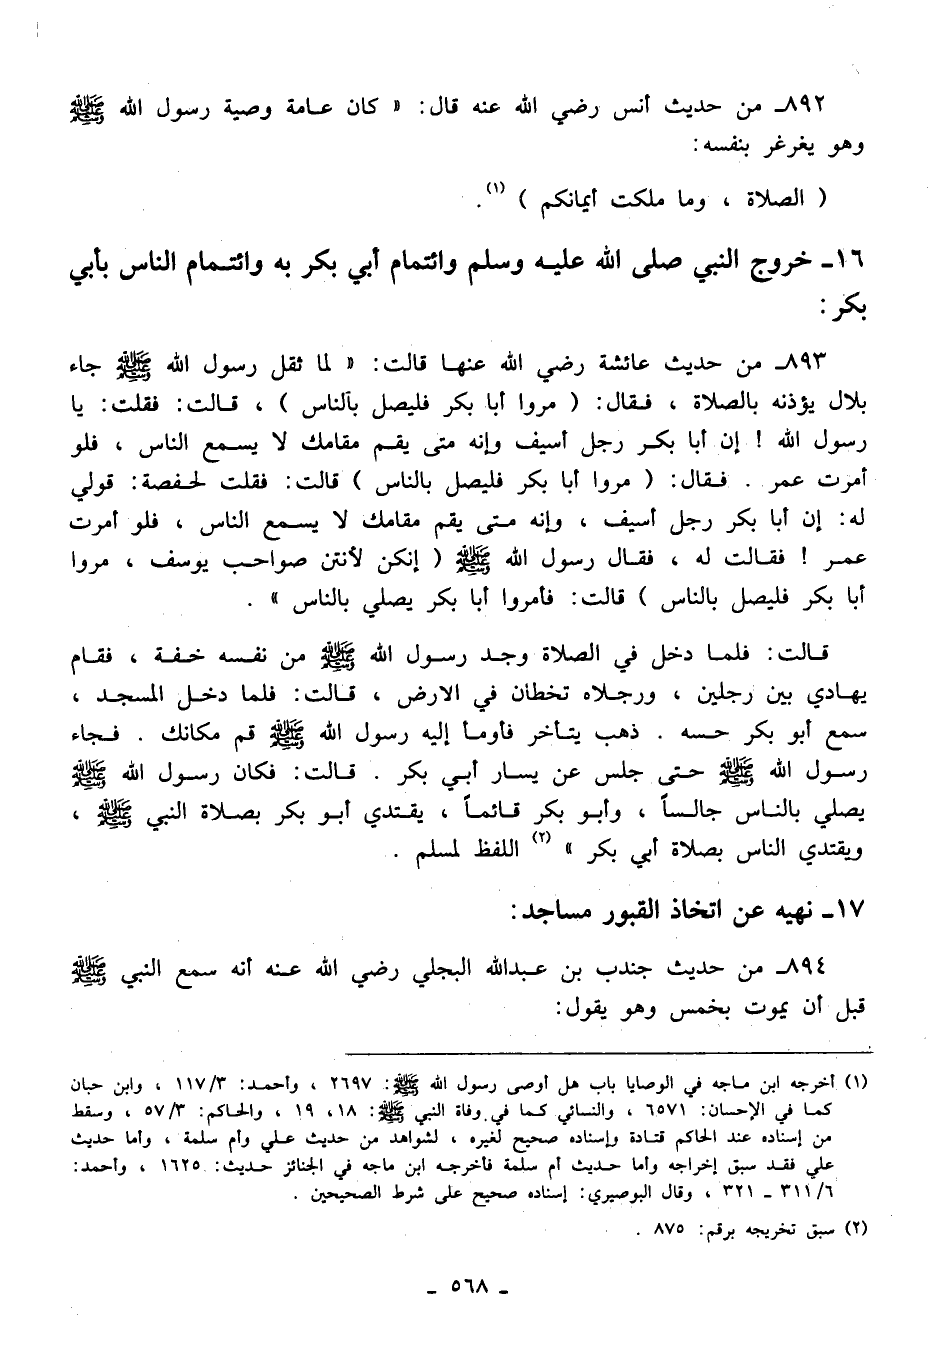 ٨٩٢ـ من حديث أنس رضي الله عنه قال: « كان عامة وصية رسول الله ﷺ
وهو يغرغر بنفسه:
( الصلاة ، وما ملكت أيمانكم ) (١).
١٦ـ خروج النبي صلى الله عليه وسلم وائتمام أبي بكر به وائتمام الناس بأبي
بكر :
٨٩٣ـ من حديث عائشة رضي الله عنها قالت: « لما ثقل رسول الله ﷺ جاء
بلال يؤذنه بالصلاة ، فقال: ( مروا أبا بكر فليصل بالناس ) ، قالت: فقلت: يا
رسول الله ! إن أبا بكر رجل أسيف وإنه متى يقم مقامك لا يسمع الناس ، فلو
أمرت عمر . فقال: ( مروا أبا بكر فليصل بالناس ) قالت: فقلت لحفصة: قولي
له: إن أبا بكر رجل أسيف ، وإنه متى يقم مقامك لا يسمع الناس ، فلو أمرت
عمر ! فقالت له ، فقال رسول الله ﷺ ( إنكن لأنتن صواحب يوسف ، مروا
أبا بكر فليصل بالناس ) قالت: فأمروا أبا بكر يصلي بالناس » .
قالت: فلما دخل في الصلاة وجد رسول الله ﷺ من نفسه خفة ، فقام
يهادي بين رجلين ، ورجلاه تخطان في الارض ، قالت: فلما دخل المسجد ،
سمع أبو بكر حسه . ذهب يتأخر فأومأ إليه رسول الله ﷺ قم مكانك . فجاء
رسول الله ﷺ حتى جلس عن يسار أبي بكر . قالت: فكان رسول الله ﷺ
يصلي بالناس جالساً ، وأبو بكر قائماً ، يقتدي أبو بكر بصلاة النبي ﷺ ،
ويقتدي الناس بصلاة أبي بكر » (٢) اللفظ لمسلم .
١٧ـ نهيه عن اتخاذ القبور مساجد:
٨٩٤ـ من حديث جندب بن عبدالله البجلي رضي الله عنه أنه سمع النبي ﷺ
قبل أن يموت بخمس وهو يقول:
(١) أخرجه ابن ماجه في الوصايا باب هل أوصى رسول الله ﷺ: ٢٦٩٧ ، وأحمد: ١١٧/٣ ، وابن حبان
كما في الإحسان: ٦٥٧١ ، والنسائي كما في وفاة النبي ﷺ: ١٨، ١٩ ، والحاكم: ٥٧/٣ ، وسقط
من إسناده عند الحاكم قتادة وإسناده صحيح لغيره ، لشواهد من حديث علي وأم سلمة ، وأما حديث
علي فقد سبق إخراجه وأما حديث أم سلمة فأخرجه ابن ماجه في الجنائز حديث: ١٦٢٥ ، وأحمد:
٣١١/٦ ـ ٣٢١ ، وقال البوصيري: إسناده صحيح على شرط الصحيحين .
(٢) سبق تخريجه برقم: ٨٧٥ .
ـ ٥٦٨ ـ